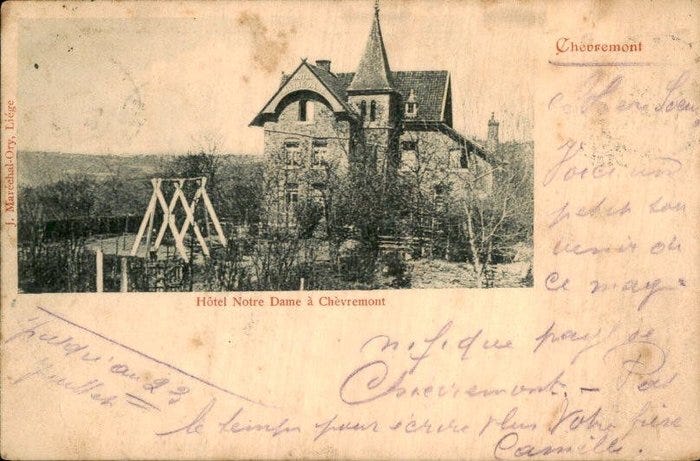 Chèvremont
J. Maréchal-Ory, Liége
Hôtel Notre Dame à Chèvremont
Chère Soeur
Voici un
petit sou
venir de
ce mag
nifique pays de
Chèvremont. - Pas
le temps pour écrire plus Votre frère
Camille.
jusqu'au 23
juillet